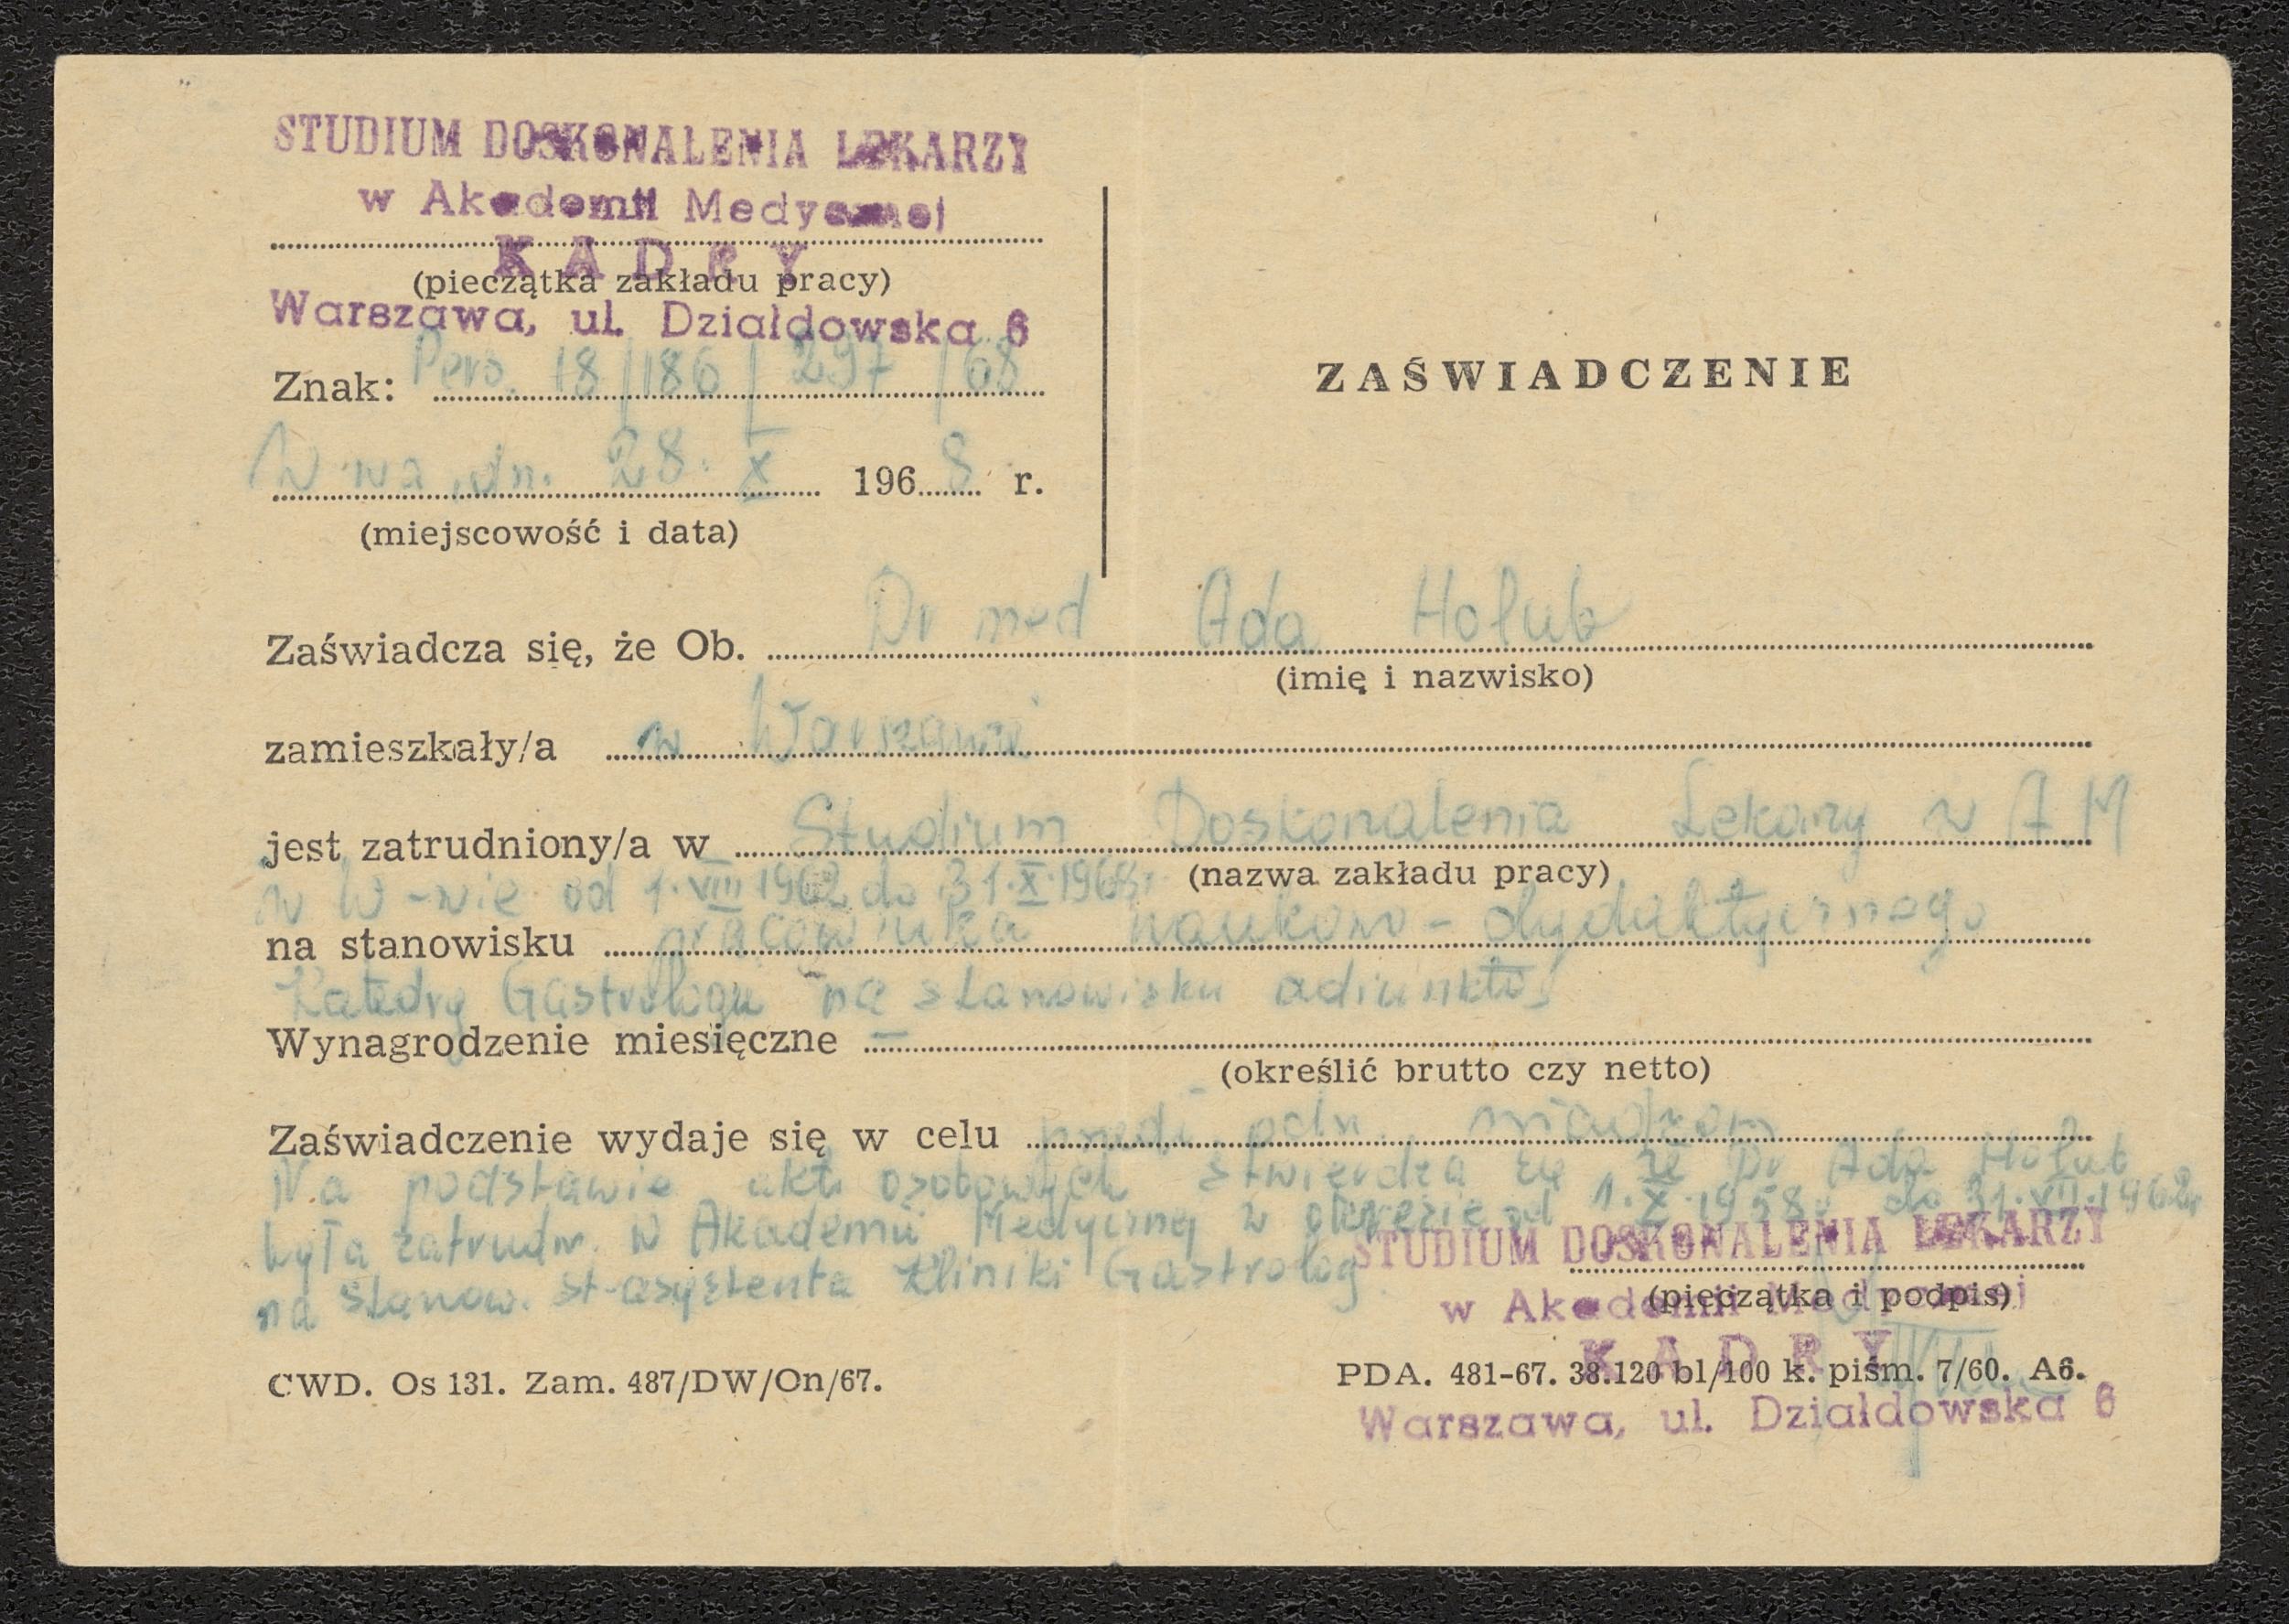 STUDIUM DOSKONALENIA LEKARZY
w Akademii Medycznej
KADRY
(pieczątka zakładu pracy)
Warszawa, ul. Działdowska 6
Znak: Pers. 18/186/297/68
W-wa, dn. 28. X 1968 r.
(miejscowość i data)
ZAŚWIADCZENIE
Zaświadcza się, że Ob. Dr med Ada Hołub
(imię i nazwisko)
zamieszkały/a w Warszawie
jest zatrudniony/a w Studium Doskonalenia Lekarzy w AM
(nazwa zakładu pracy)
w W-wie od 1.VIII 1962 do 31.X.1968
na stanowisku pracownika naukowo-dydaktycznego
Katedry Gastrologii na stanowisku adiunkta
Wynagrodzenie miesięczne —
(określić brutto czy netto)
Zaświadczenie wydaje się w celu władzom
Na podstawie akt osobowych stwierdza się że Dr Ada Hołub
była zatrudn. w Akademii Medycznej w okresie od 1.X.1958 do 31.VII.1962
na stanow. st. asystenta Kliniki Gastrolog
STUDIUM DOSKONALENIA LEKARZY
(pieczątka i podpis)
w Akademii Medycznej
KADRY
CWD. Os 131. Zam. 487/DW/On/67.
PDA. 481-67. 38.120 bl/100 k. piśm. 7/60. A6.
Warszawa, ul. Działdowska 6